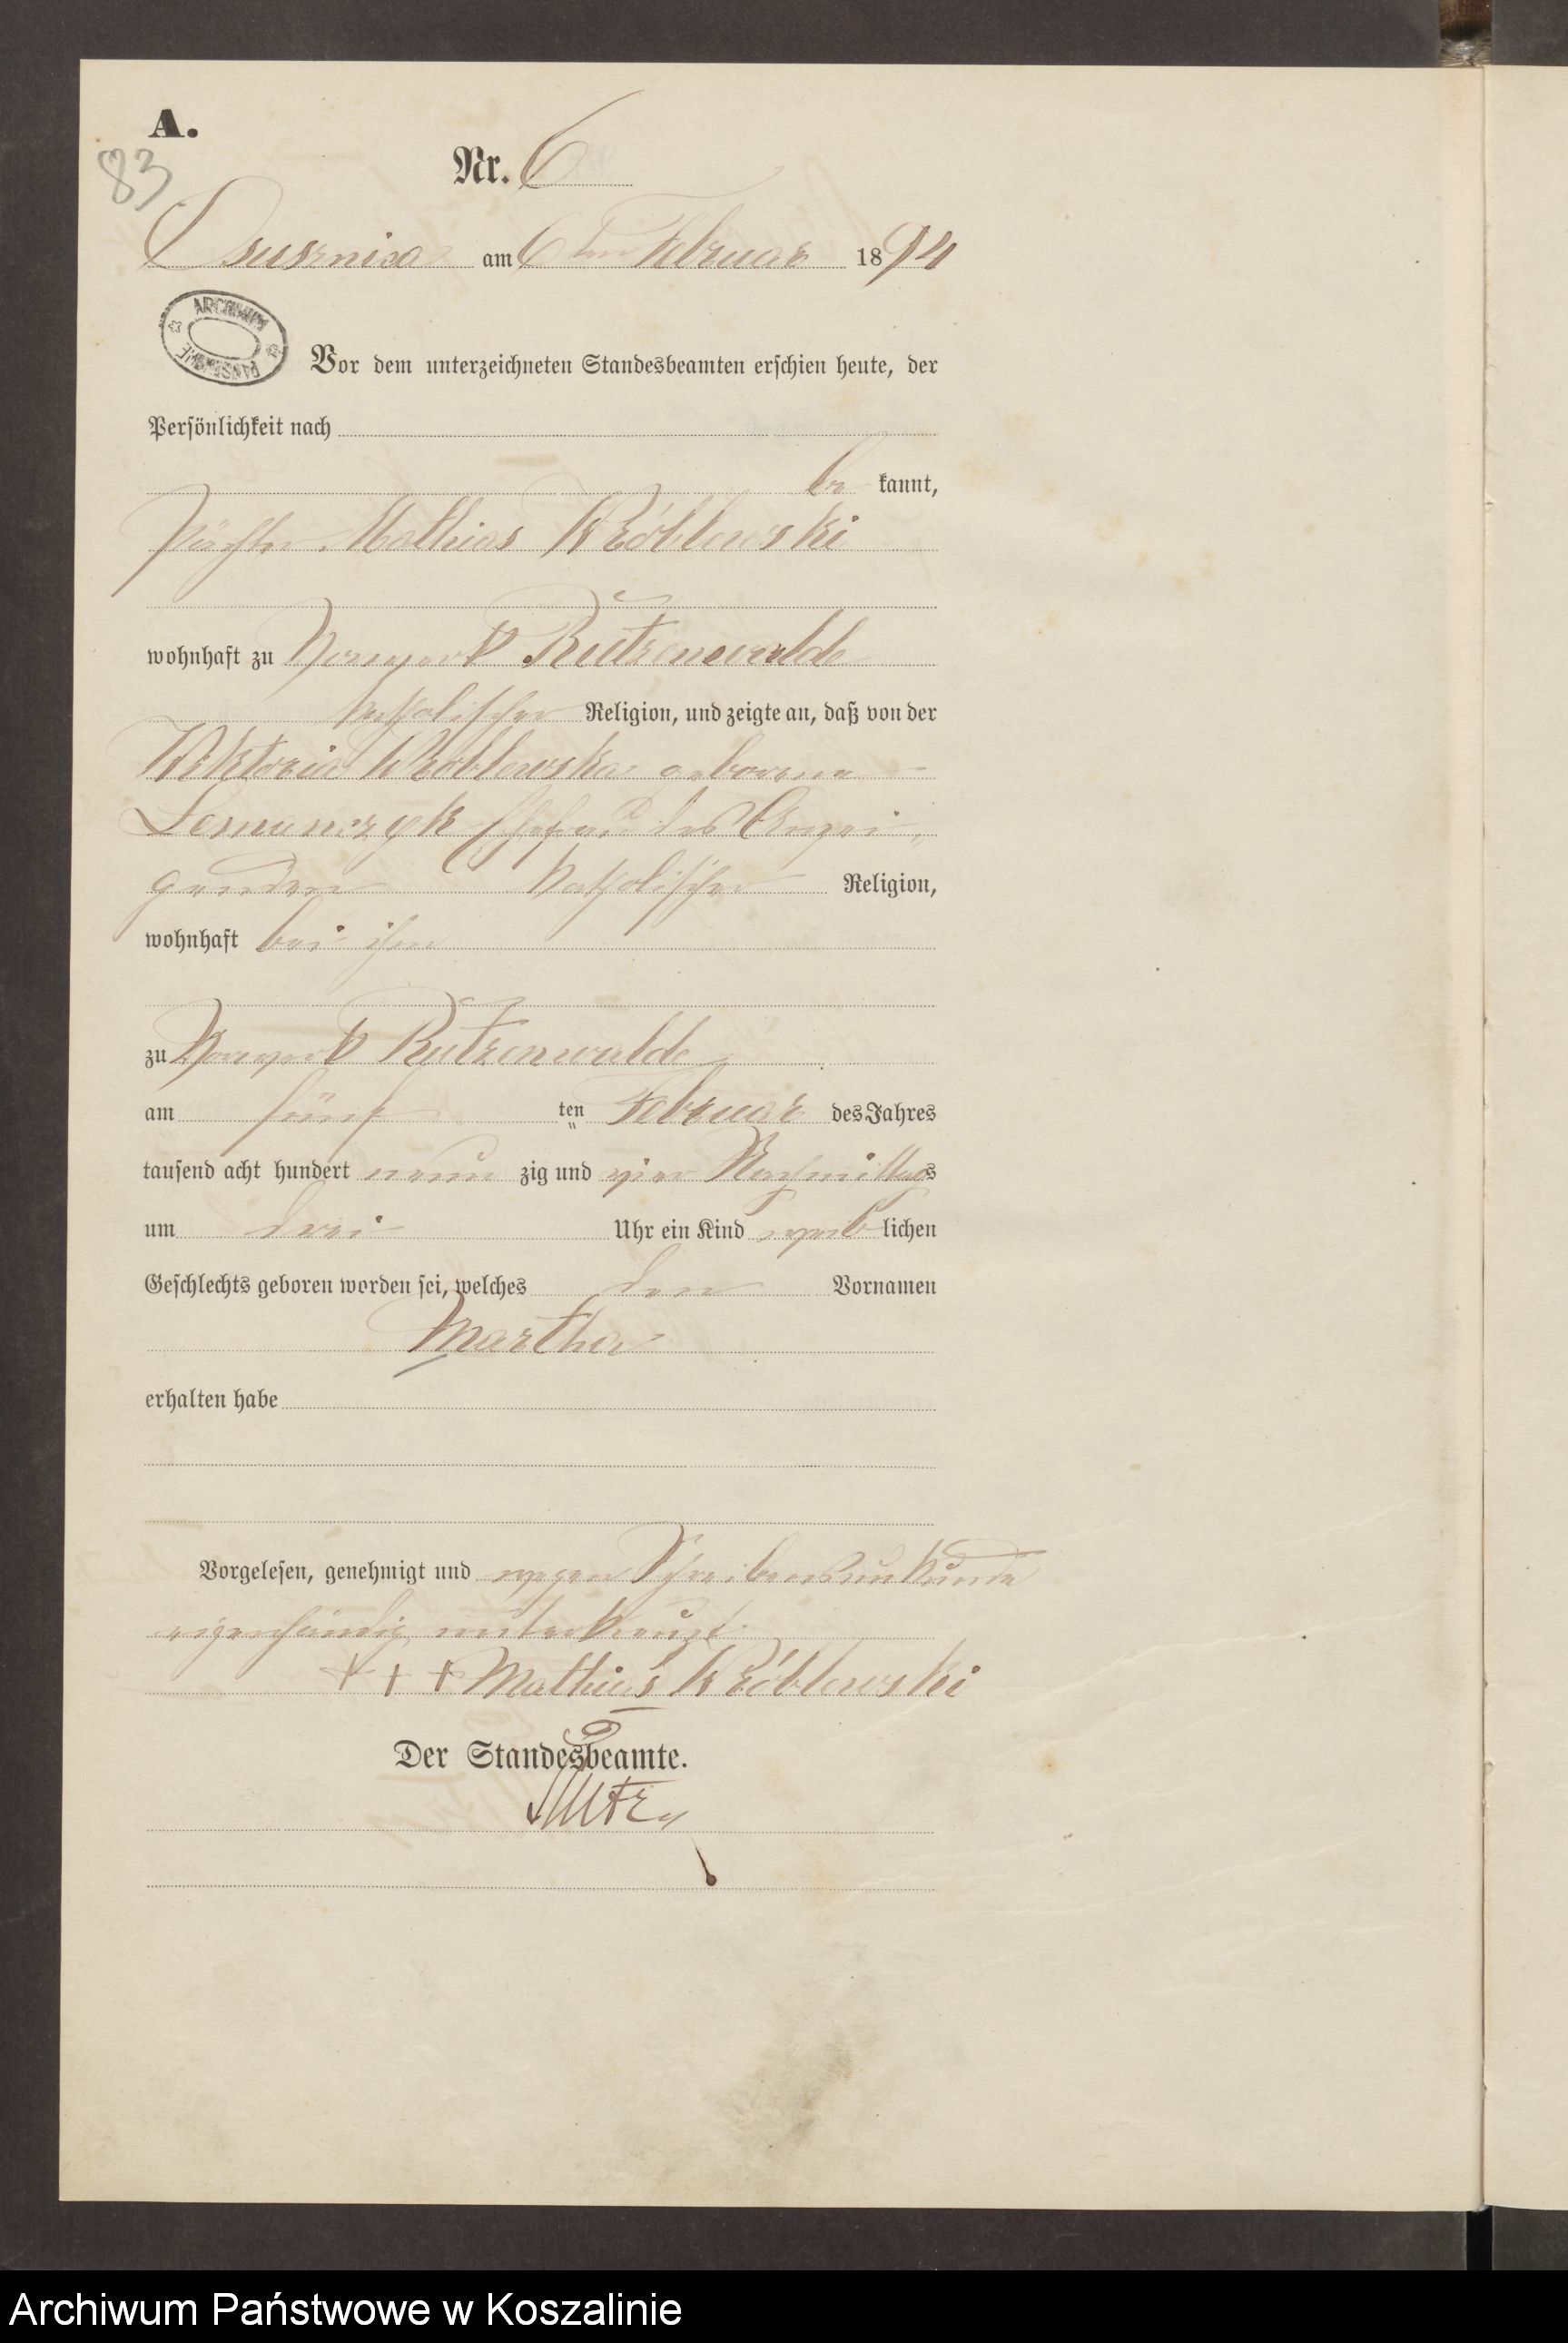 A.
83
Nr. 6
Osusznica am 6ten Februar 1894
ARCHIWUM
Vor dem unterzeichneten Standesbeamten erschien heute, der
Persönlichkeit nach
be kannt,
Pächter Mathias Wróblewski
wohnhaft zu Vorwerk Rutzenwalde
katholischer Religion, und zeigte an, daß von der
Wiktoria Wróblewska geborene
Lemanczyk Ehefrau des Anzei„
genden katholischer Religion,
wohnhaft bei ihm
zu Vorwerk Rutzenwalde
am fünf ten Februar des Jahres
tausend acht hundert neun zig und vier Nachmittags
um drei Uhr ein Kind weib lichen
Geschlechts geboren worden sei, welches den Vornamen
Martha
erhalten habe
Vorgelesen, genehmigt und wegen Schreibensunkunde
eigenhändig unterkreuzt.
+ + + Mathias Wróblewski
Der Standesbeamte.
Archiwum Państwowe w Koszalinie